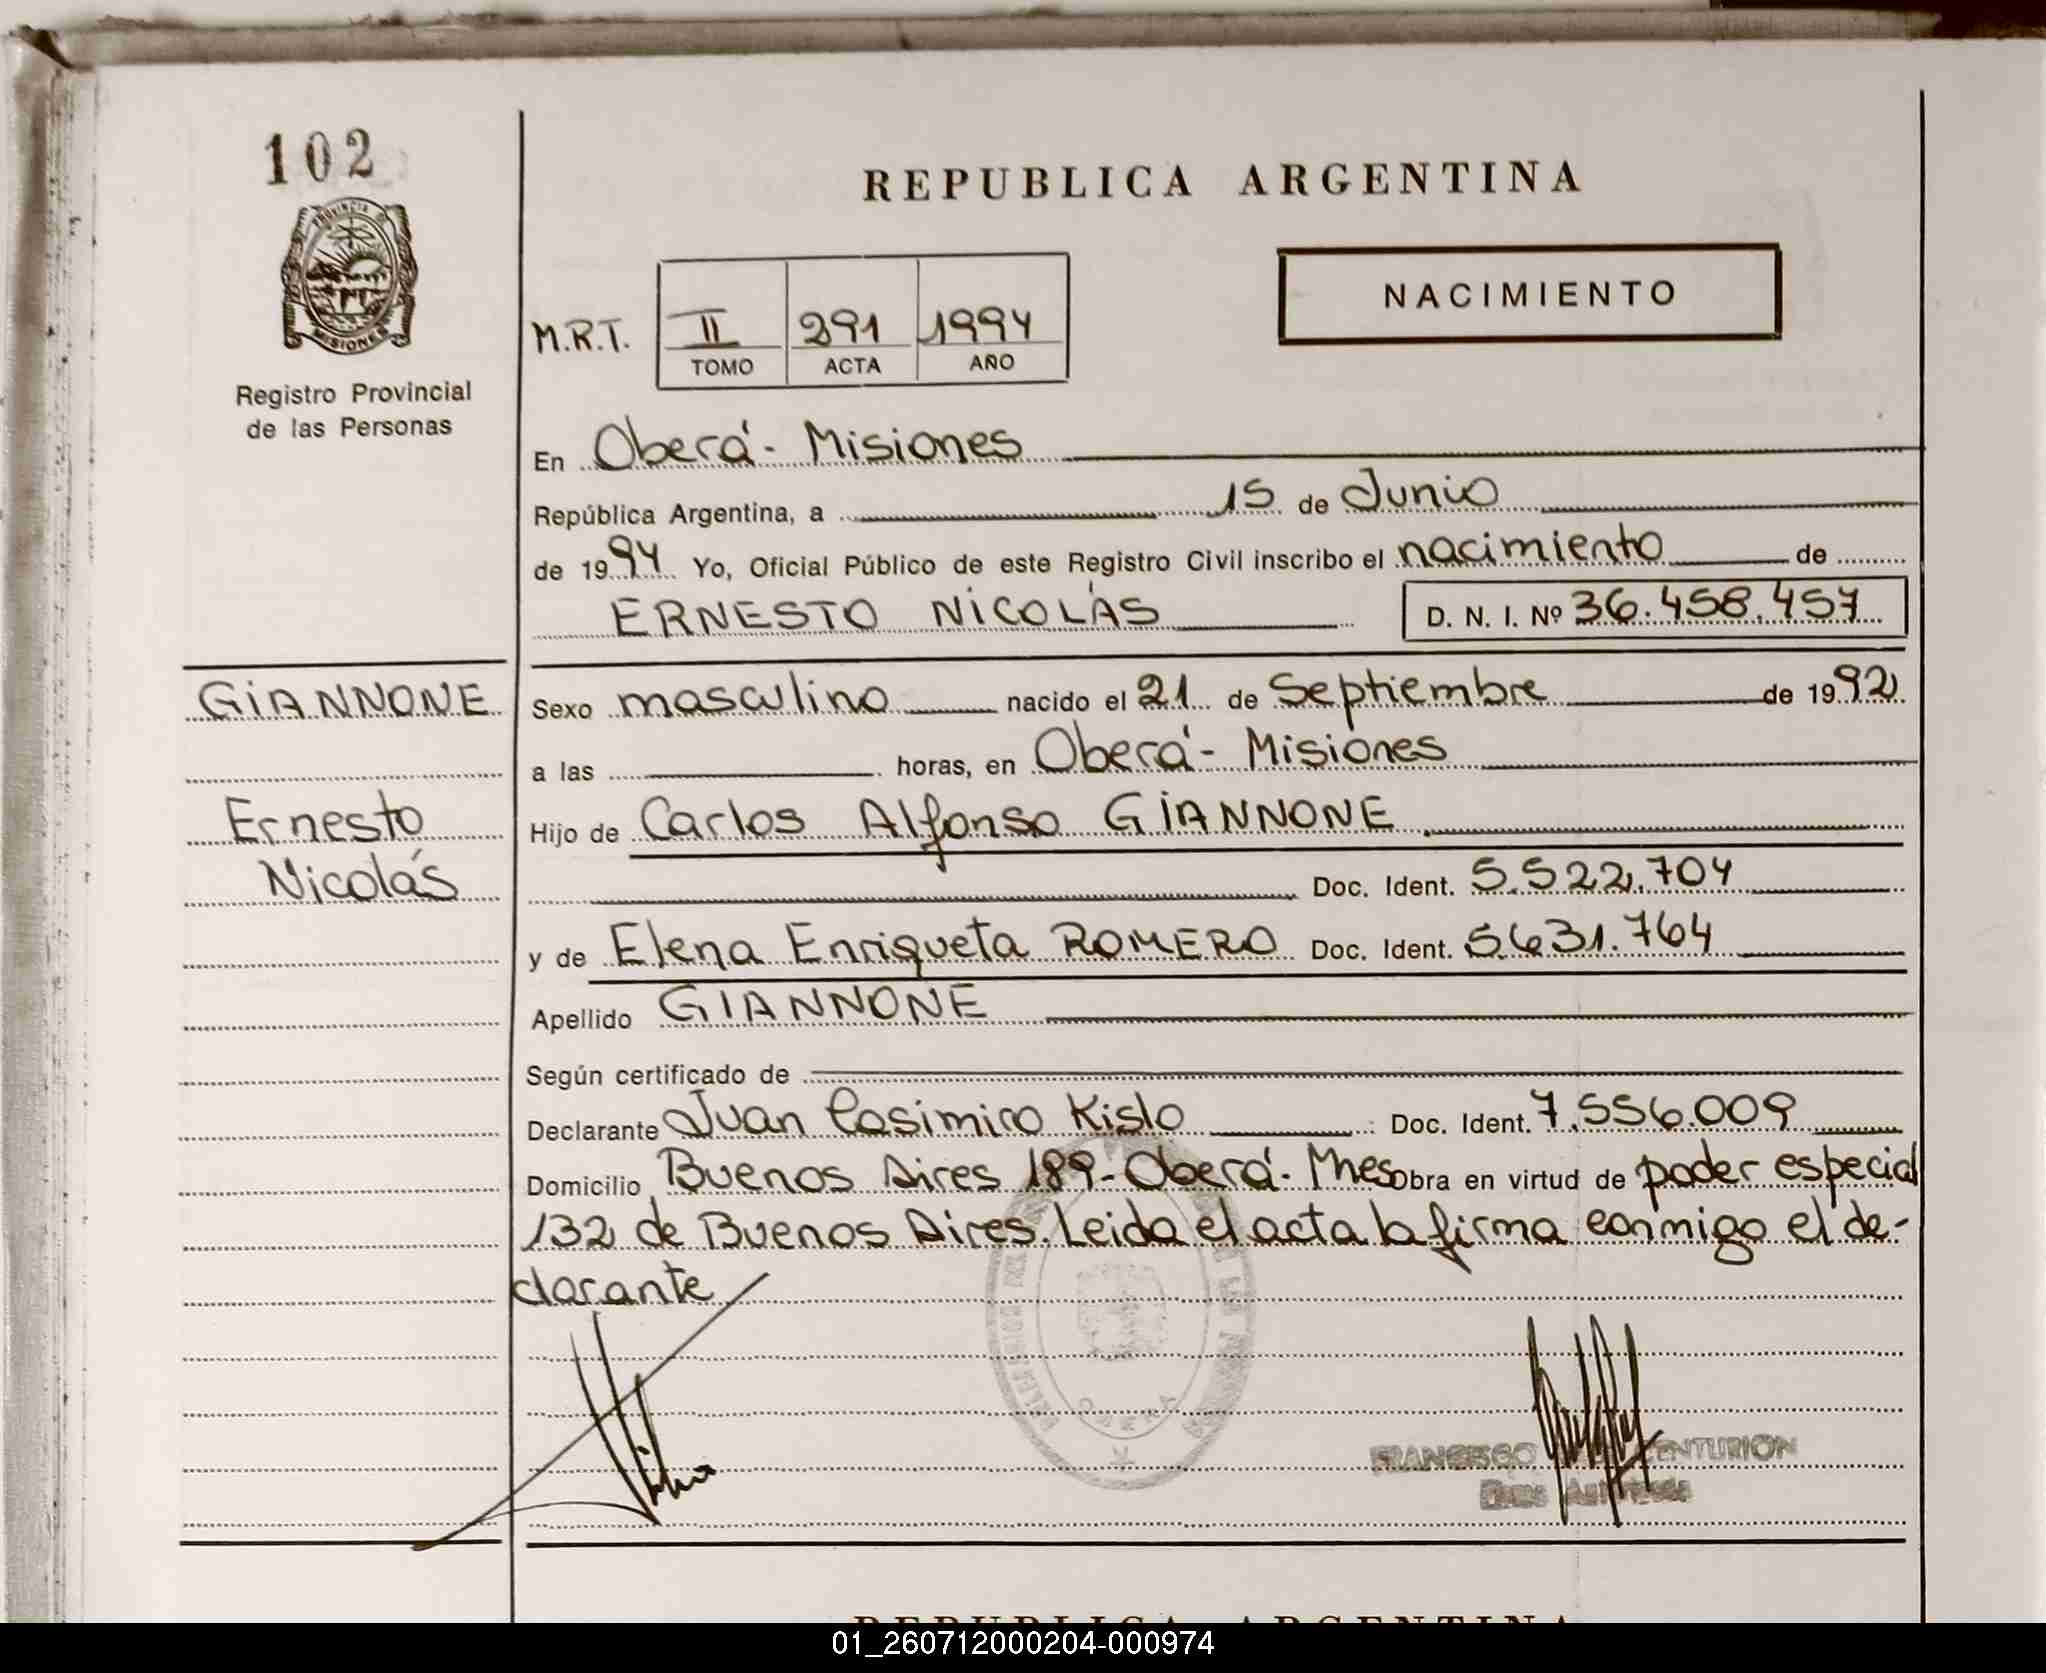 102
REPUBLICA ARGENTINA
PROVINCIA DE
MISIONES
Registro Provincial
de las Personas
NACIMIENTO
M.R.T.
II 291 1994
TOMO ACTA AÑO
En Oberá - Misiones
República Argentina, a 15 de Junio
de 1994 Yo, Oficial Público de este Registro Civil inscribo el nacimiento de
ERNESTO NICOLÁS D. N. I. Nº 36.458.457
GIANNONE
Sexo masculino nacido el 21 de Septiembre de 1992
a las horas, en Oberá - Misiones
Ernesto
Nicolás
Hijo de Carlos Alfonso GIANNONE
Doc. Ident. 5.522.704
y de Elena Enriqueta ROMERO Doc. Ident. 5.631.764
Apellido GIANNONE
Según certificado de
Declarante Juan Casimiro Kislo Doc. Ident. 7.556.009
Domicilio Buenos Aires 189 - Oberá - Mnes Obra en virtud de poder especial
132 de Buenos Aires. Leida el acta la firma conmigo el de-
clarante
FRANCISCO CENTURION
REPUBLICA ARGENTINA
01_260712000204-000974